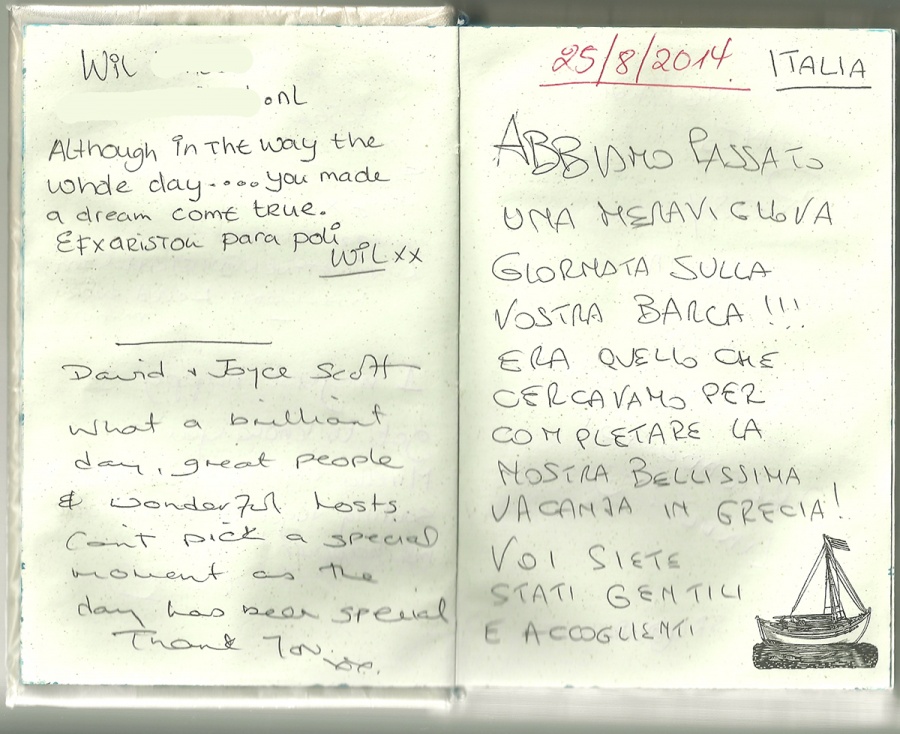 Wil
.nl
Although in the way the
whole day.... you made
a dream come true.
Efxariston para poli
Wil xx
David & Joyce Scott
What a brilliant
day, great people
& wonderful hosts.
Can't pick a special
moment as the
day has been special
Thank you
xx.
25/8/2014 ITALIA
ABBIAMO PASSATO
UNA MERAVIGLIOVA
GIORNATA SULLA
VOSTRA BARCA !!!
ERA QUELLO CHE
CERCAVAMO PER
COMPLETARE LA
NOSTRA BELLISSIMA
VACANZA IN GRECIA!
VOI SIETE
STATI GENTILI
E ACCOGLIENTI